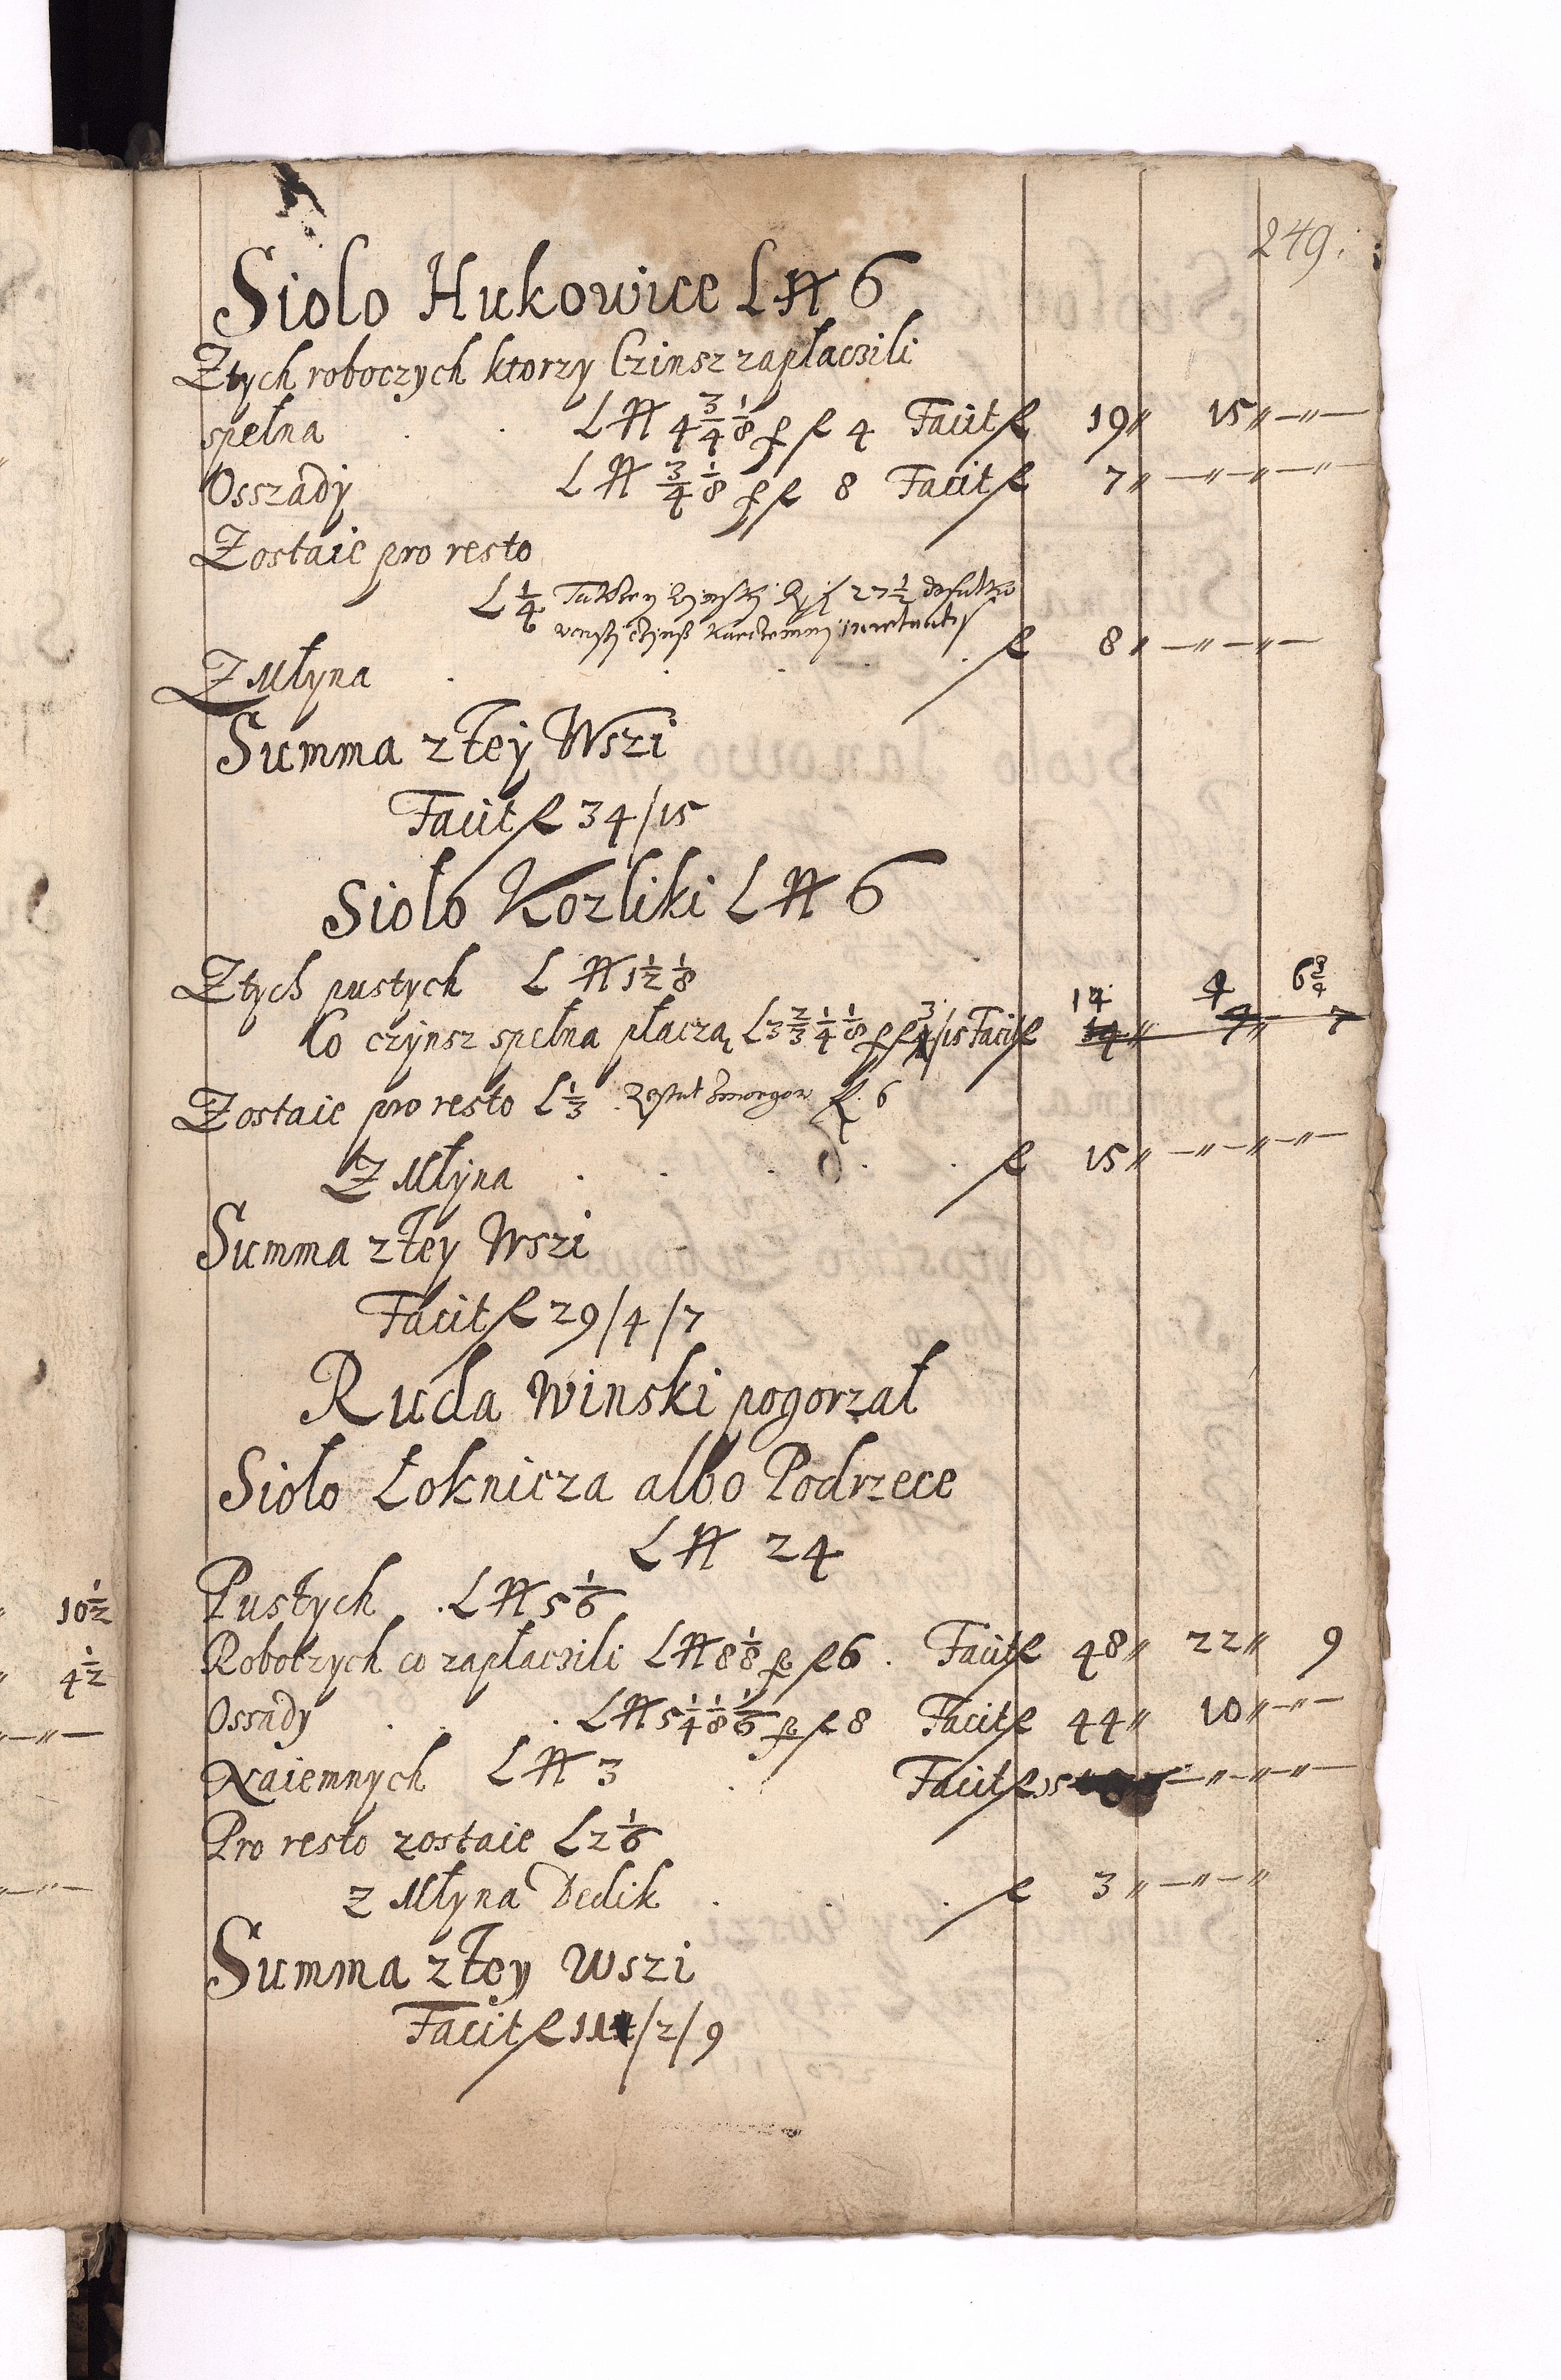 249.
Sioło Hukowice Ł N 6
Z tych roboczych ktorzy Czinsz zapłaczili
spełna . . Ł N 4 3/4 1/8 p fl 4 Facit fl 19 〃 15 〃—〃—
Osszady Ł N 3/4 1/8 p fl 8 Facit fl 7 〃—〃—〃—〃—
Zostaie pro resto
Ł 1/4 27 1/2
Z Młyna . . . . fl 8 〃—〃—〃—
Summa z tey Wszi
Facit fl 34/15
Sioło Kozliki Ł N 6
Z tych pustych Ł N 1 1/2 1/8
14 4 6 3/4
Co czynsz spełna płaczą Ł 3 2/3 1/4 1/8 p fl 3/15 Facit fl 14 〃 4 〃 7
Zostaie pro resto Ł 1/3 . fl. 6
Z Młyna . . . . . fl 15 〃—〃—〃—〃—
Summa z tey Wszi
Facit fl 29/4/7
Ruda Winski pogorzał
Sioło Łoknicza albo Podrzece
Ł N 24
Pustych . Ł N 5 1/6
Roboczych co zapłaczili Ł N 8 1/8 p fl 6 . Facit fl 48 〃 22 〃 9
Ossady . . . Ł N 5 1/4 1/8 1/6 p fl 8 Facit fl 44 〃 10 〃—〃—
Naiemnych Ł N 3 . Facit fl 15 —〃—〃—〃—
Pro resto zostaie Ł 2 1/6
z Młyna Dedik . . . fl 3 〃—〃—〃
Summa z tey Wszi
Facit fl 111/2/9
10 1/2
4 1/2